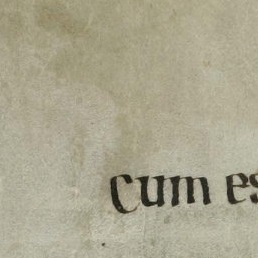 Cum es